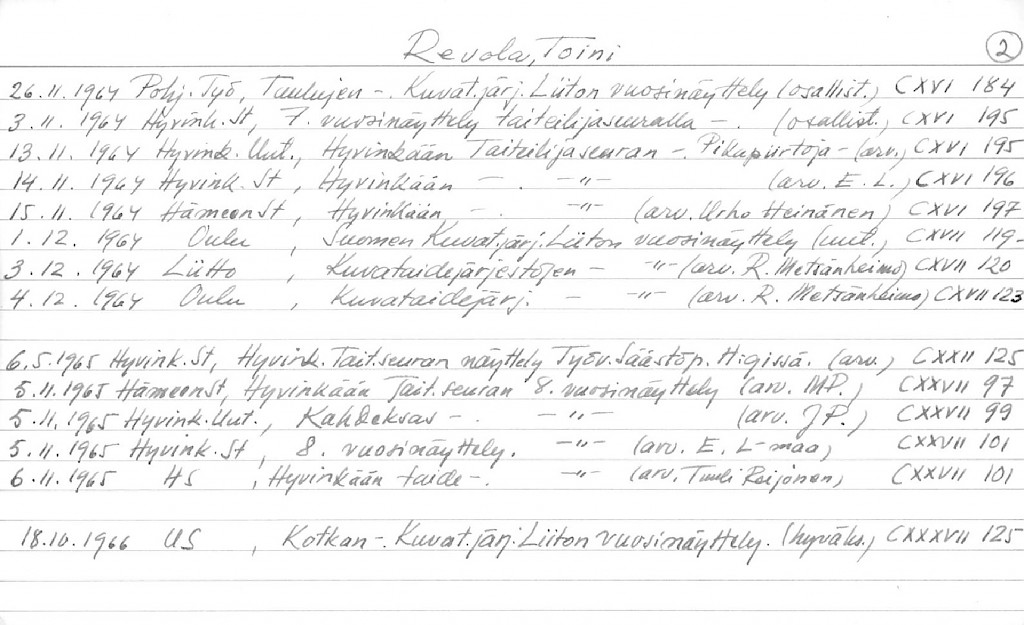 Revola, Toini 2
26.11.1964 Pohj. Työ, Taulujen -. Kuvat.järj. Liiton vuosinäyttely (osallist.) CXVI 184
3.11.1964 Hyvink. St, 7. vuosinäyttely taiteilijaseuralla -. (osallist.) CXVI 195
13.11.1964 Hyvink. Uut., Hyvinkään Taiteilijaseuran -. Pikapiirtoja - (arv.) CXVI 195
14.11.1964 Hyvink. St, Hyvinkään -. -"- (arv. E. L.) CXVI 196
15.11.1964 Hämeen St, Hyvinkään -. -"- (arv. Urho Heinänen) CXVI 197
1.12.1964 Oulu, Suomen Kuvat.järj. Liiton vuosinäyttely (uut., CXVII 119-
3.12.1964 Liitto, Kuvataidejärjestöjen - -"- (arv. R. Metsänheimo) CXVII 120
4.12.1964 Oulu, Kuvataidejärj. - -"- (arv. R. Metsänheimo) CXVII 123
6.5.1965 Hyvink. St, Hyvink. Tait.seuran näyttely Työv. Säästöp. H:gissä. (arv.) CXXII 125
5.11.1965 Hämeen St, Hyvinkään Tait.seuran 8. vuosinäyttely (arv. MP.) CXXVII 97
5.11.1965 Hyvink. Uut., Kahdeksas -. -"- (arv. JP.) CXXVII 99
5.11.1965 Hyvink. St, 8. vuosinäyttely. -"- (arv. E. L-maa) CXXVII 101
6.11.1965 HS, Hyvinkään taide -. -"- (arv. Tuuli Reijonen) CXXVII 101
18.10.1966 US, Kotkan -. Kuvat.järj. Liiton vuosinäyttely. (hyväks.) CXXXVII 125